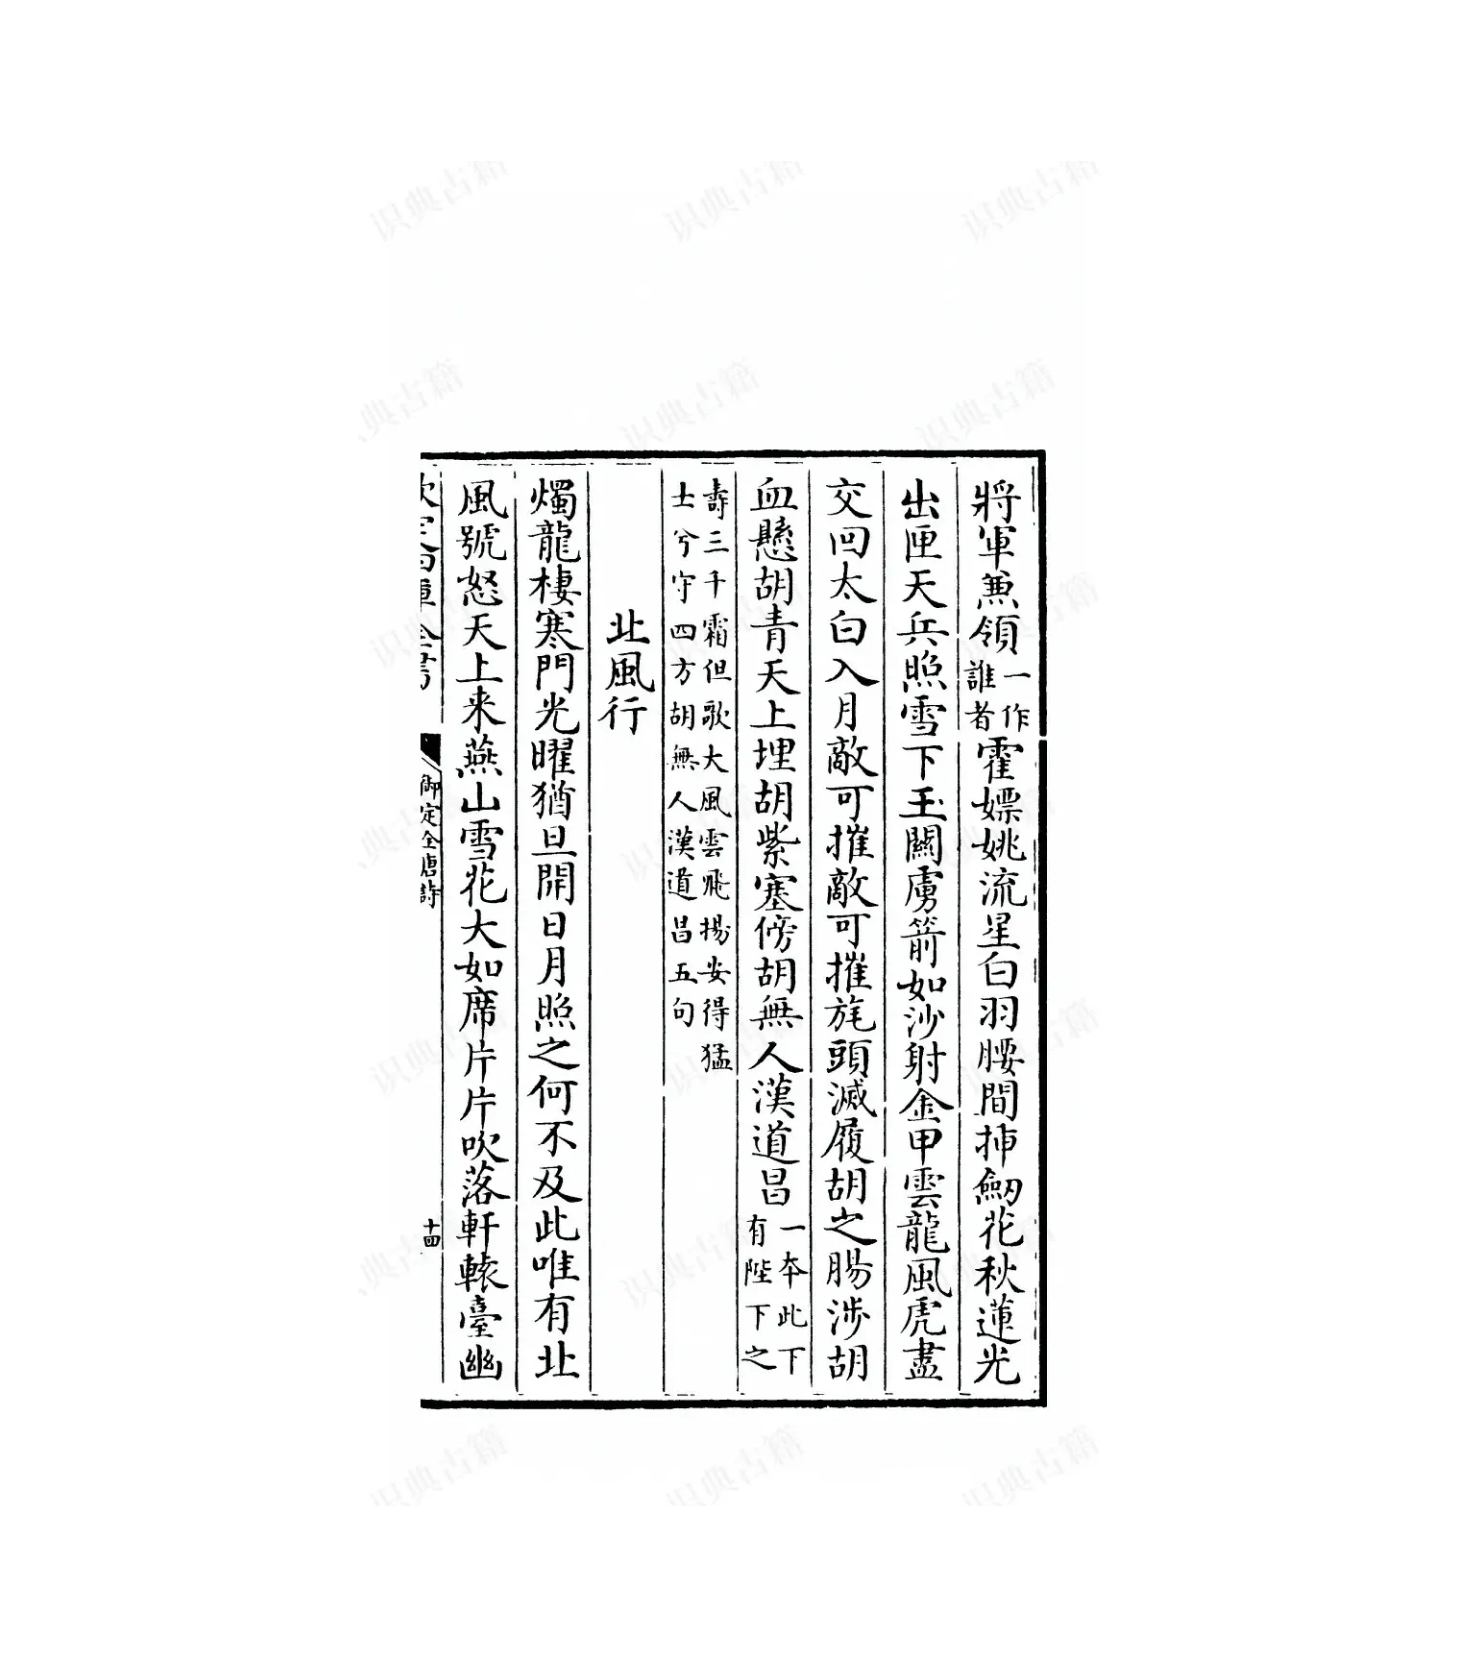 將軍兼領一作誰者霍嫖姚流星白羽腰間揷劒花秋蓮光
出匣天兵照雪下玉關虜箭如沙射金甲雲龍風虎盡
交回太白入月敵可摧敵可摧旄頭滅履胡之腸涉胡
血懸胡青天上埋胡紫塞傍胡無人漢道昌一本此下有陛下之
壽三千霜但歌大風雲飛揚安得猛士兮守四方胡無人漢道昌五句
北風行
燭龍棲寒門光曜猶旦開日月照之何不及此唯有北
風號怒天上来燕山雪花大如席片片吹落軒轅臺幽
欽定四庫全書
御定全唐詩
十四
识典古籍